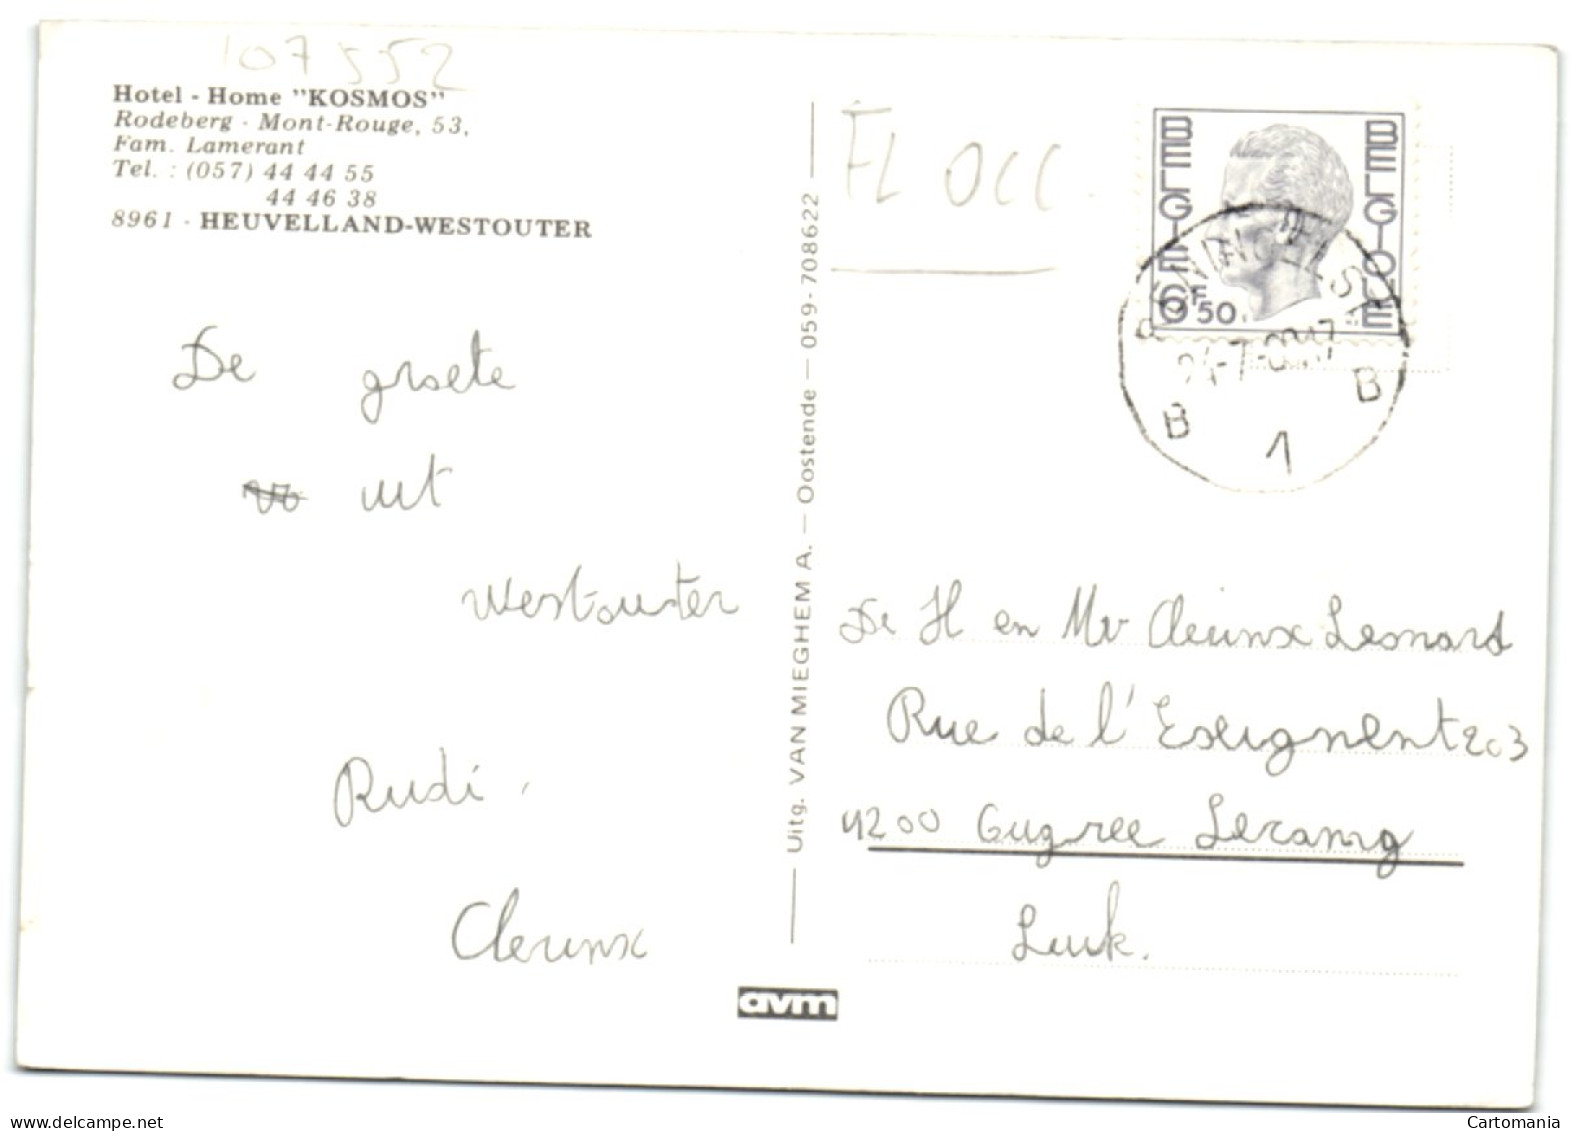 107552
Hotel - Home "KOSMOS"
Rodeberg - Mont-Rouge, 53,
Fam. Lamerant
Tel. : (057) 44 44 55
44 46 38
8961 - HEUVELLAND-WESTOUTER
De groete
uit
Westouter
Rudi.
Clerinx
Uitg. VAN MIEGHEM A. — Oostende — 059-708622
avm
FL OCC.
BELGIE BELGIQUE
6F50
RENINGELST
24-7-
B 1 B
De H en Mv Clerinx Leonard
Rue de l'Eseignent 203
4200 Gugree Seraing
Luik.
www.delcampe.net
Cartomania